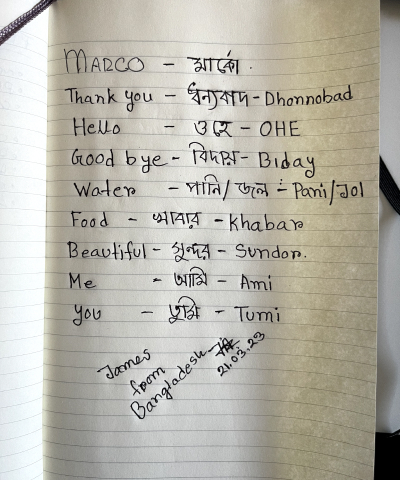 MARCO - মার্কো.
Thank you - ধন্যবাদ - Dhonnobad
Hello - ওহে - OHE
Good bye - বিদায় - Biday
Water - পানি/জল - Pani/Jol
Food - খাবার - Khabar
Beautiful - সুন্দর - Sundor.
Me - আমি - Ami
you - তুমি - Tumi
James
from
Bangladesh
21.03.23